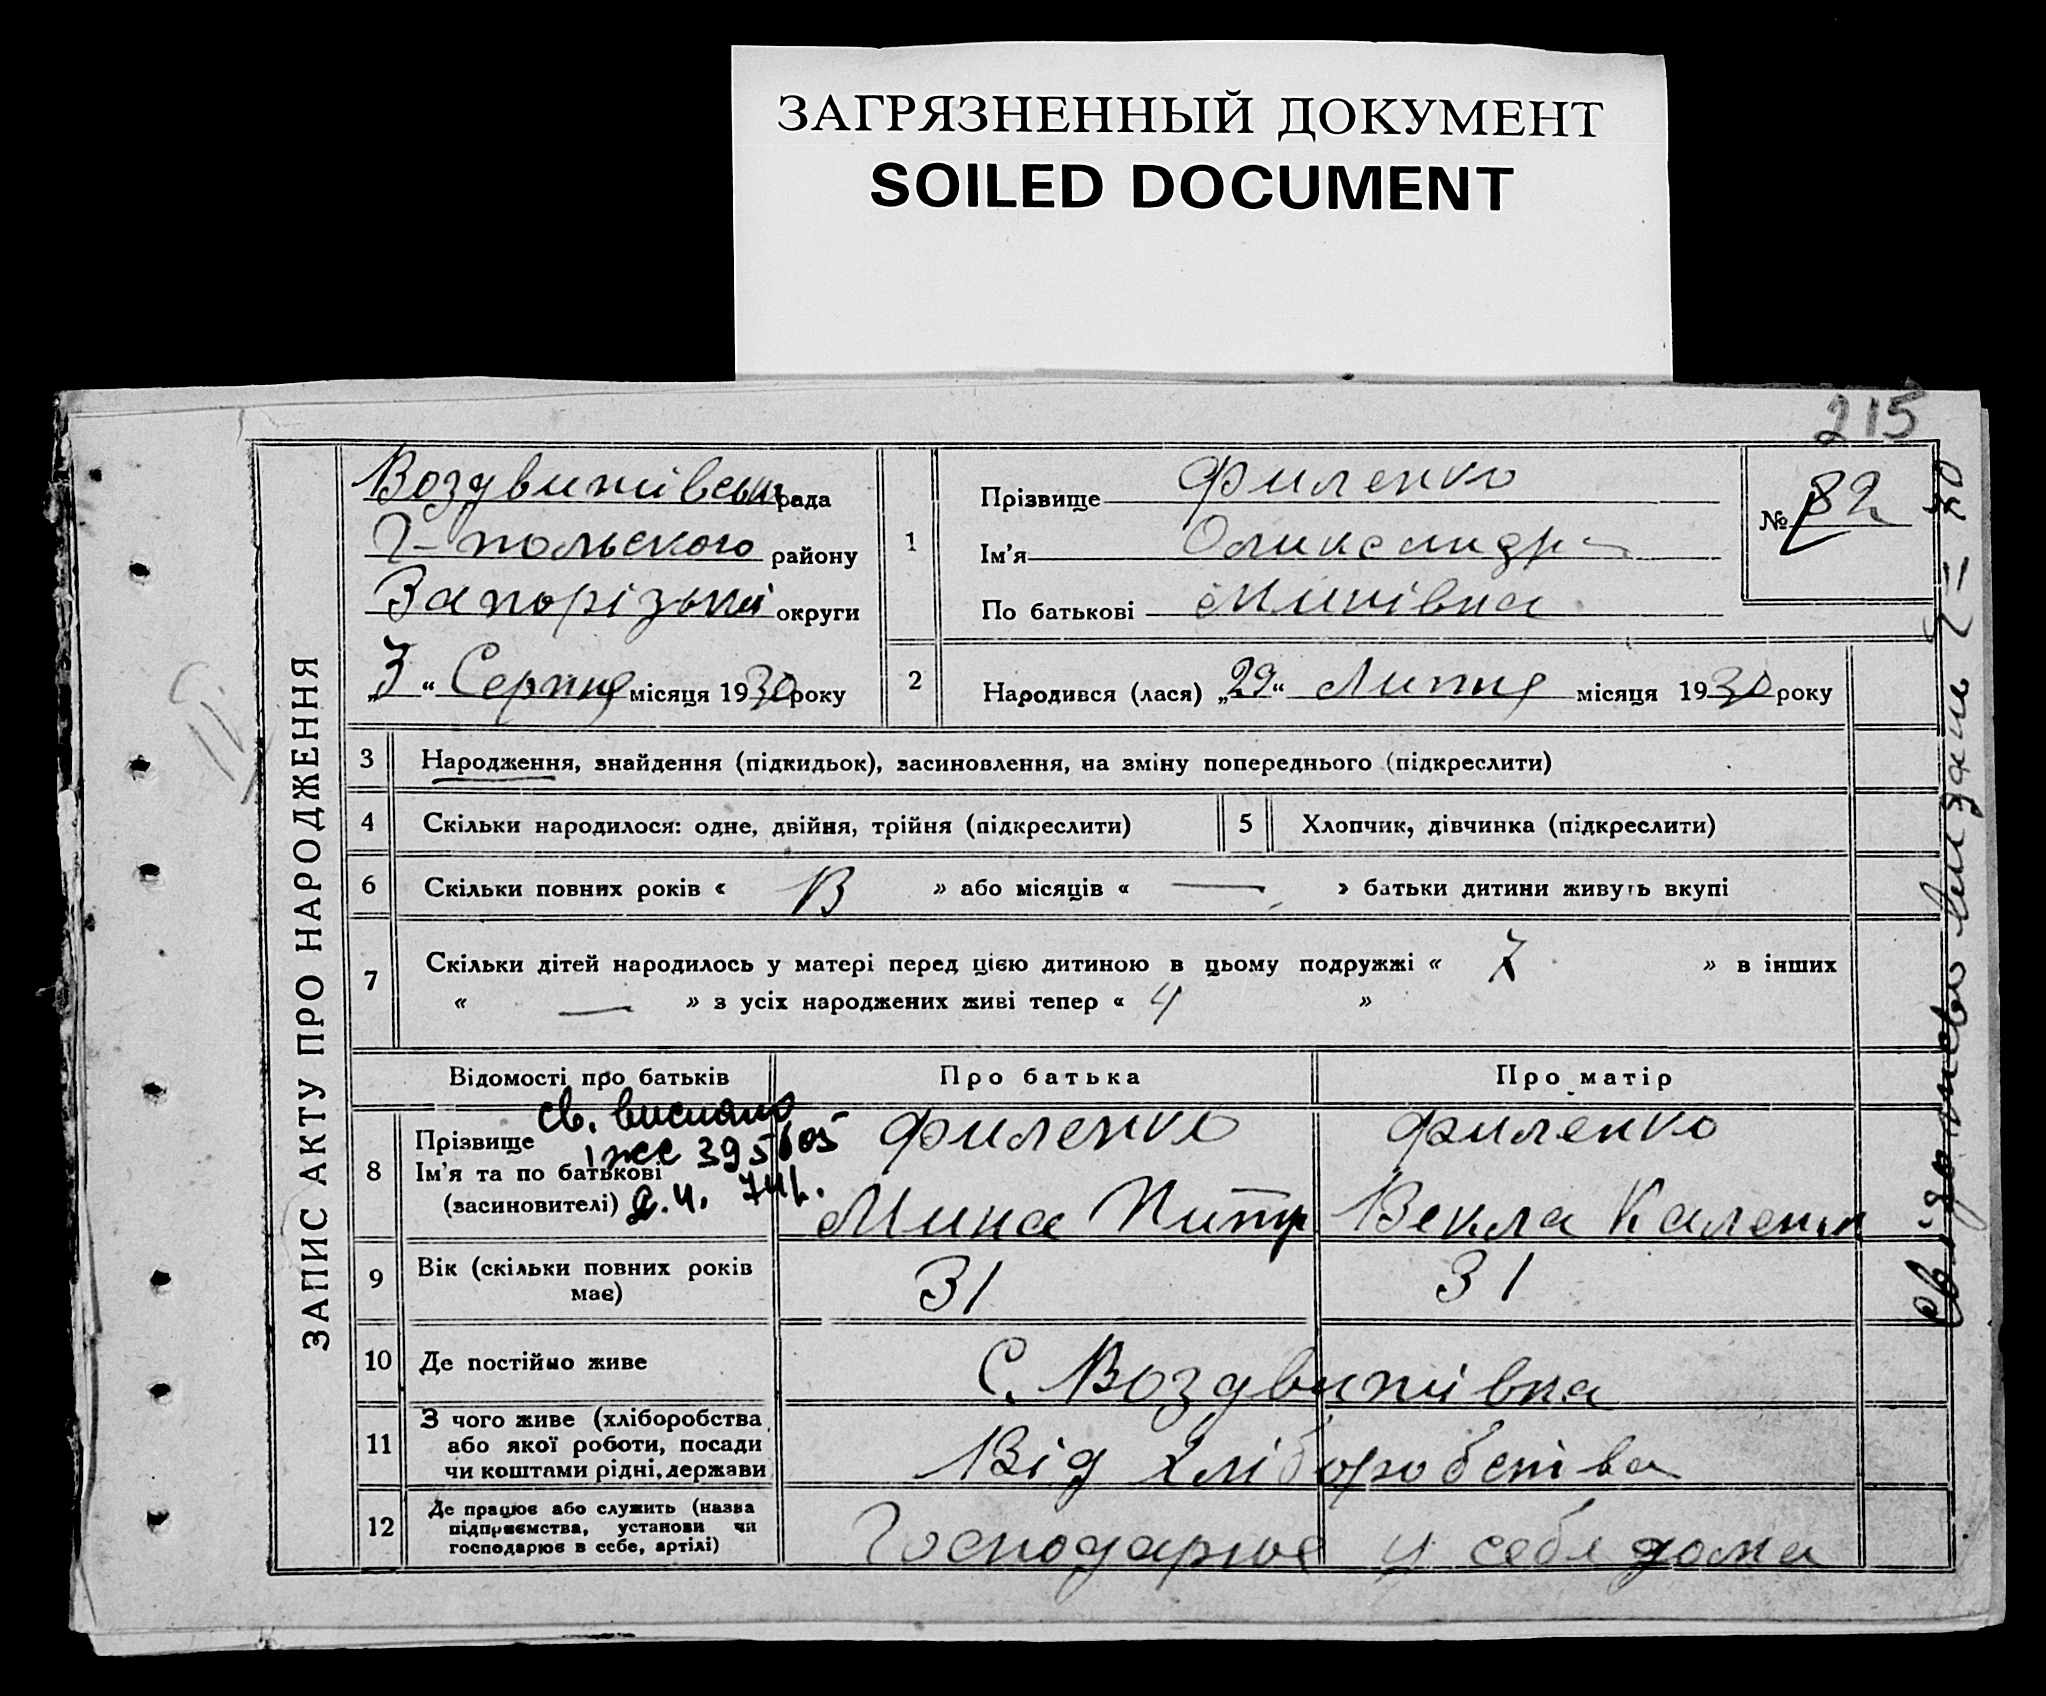 ЗАГРЯЗНЕННЫЙ ДОКУМЕНТ
SOILED DOCUMENT
215
ЗАПИС АКТУ ПРО НАРОДЖЕННЯ
Воздвижівська рада
Г-польского району
Запорізької округи
„3“ Серпня місяця 1930 року
1
Прізвище Филенко
Ім'я Олександра
По батькові Минівна
№ 82
2
Народився (лася) „29“ Липня місяця 1930 року
3 Народження, знайдення (підкидьок), засиновлення, на зміну попереднього (підкреслити)
4 Скільки народилося: одне, двійня, трійня (підкреслити)
5 Хлопчик, дівчинка (підкреслити)
6 Скільки повних років « 13 » або місяців « — » батьки дитини живуть вкупі
7 Скільки дітей народилось у матері перед цією дитиною в цьому подружжі « 7 » в інших
« — » з усіх народжених живі тепер « 4 »
Відомості про батьків Про батька Про матір
св. виписано
8 Прізвище Филенко Филенко
ІЖС 395605
Ім'я та по батькові
(засиновителі) Мина Питр Векла Кален
9 Вік (скільки повних років має) 31 31
10 Де постійно живе С. Воздвижівка
11 З чого живе (хліборобства
або якої роботи, посади
чи коштами рідні, держави
Від хліборобства
12 Де працює або служить (назва
підприємства, установи чи
господарює в себе, артілі)
Господарює у себе дома